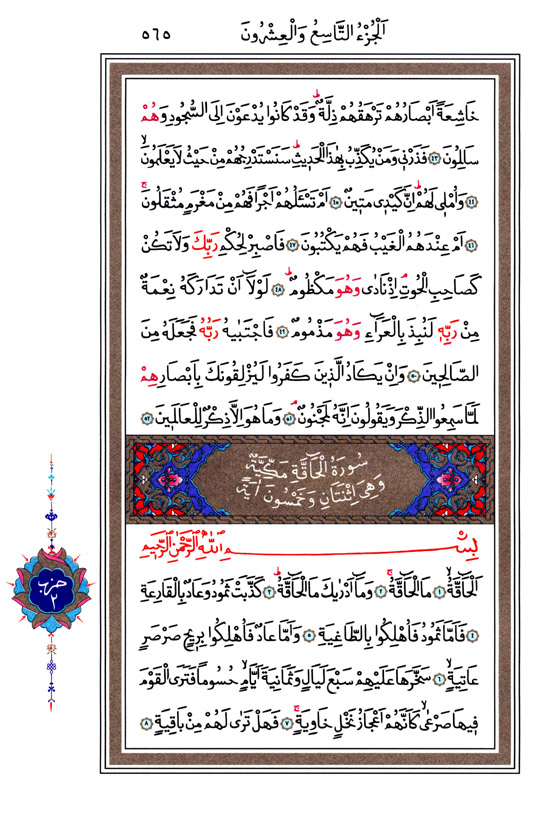 اَلْجُزْءُ التَّاسِعُ وَالْعِشْرُونَ ٥٦٥
خَاشِعَةً اَبْصَارُهُمْ تَرْهَقُهُمْ ذِلَّةٌۜ وَقَدْ كَانُوا يُدْعَوْنَ اِلَى السُّجُودِ وَهُمْ
سَالِمُونَ ﴿٤٣﴾ فَذَرْنٖي وَمَنْ يُكَذِّبُ بِهٰذَا الْحَدٖيثِۜ سَنَسْتَدْرِجُهُمْ مِنْ حَيْثُ لَا يَعْلَمُونَۙ
﴿٤٤﴾ وَاُمْلٖي لَهُمْۜ اِنَّ كَيْدٖي مَتٖينٌ ﴿٤٥﴾ اَمْ تَسْـَٔلُهُمْ اَجْرًا فَهُمْ مِنْ مَغْرَمٍ مُثْقَلُونَۚ
﴿٤٦﴾ اَمْ عِنْدَهُمُ الْغَيْبُ فَهُمْ يَكْتُبُونَ ﴿٤٧﴾ فَاصْبِرْ لِحُكْمِ رَبِّكَ وَلَا تَكُنْ
كَصَاحِبِ الْحُوتِۢ اِذْ نَادٰى وَهُوَ مَكْظُومٌۜ ﴿٤٨﴾ لَوْلَٓا اَنْ تَدَارَكَهُ نِعْمَةٌ
مِنْ رَبِّهٖ لَنُبِذَ بِالْعَرَٓاءِ وَهُوَ مَذْمُومٌ ﴿٤٩﴾ فَاجْتَبٰيهُ رَبُّهُ فَجَعَلَهُ مِنَ
الصَّالِحٖينَ ﴿٥٠﴾ وَاِنْ يَكَادُ الَّذٖينَ كَفَرُوا لَيُزْلِقُونَكَ بِاَبْصَارِهِمْ
لَمَّا سَمِعُوا الذِّكْرَ وَيَقُولُونَ اِنَّهُ لَمَجْنُونٌۢ ﴿٥١﴾ وَمَا هُوَ اِلَّا ذِكْرٌ لِلْعَالَمٖينَ ﴿٥٢﴾
سُورَةُ الْحَاقَّةِ مَكِّيَّةٌ
وَهِيَ اِثْنَتَانِ وَخَمْسُونَ اٰيَةً
بِسْمِ اللّٰهِ الرَّحْمٰنِ الرَّحٖيمِ
اَلْحَاقَّةُۙ ﴿١﴾ مَا الْحَاقَّةُۚ ﴿٢﴾ وَمَٓا اَدْرٰيكَ مَا الْحَاقَّةُۜ ﴿٣﴾ كَذَّبَتْ ثَمُودُ وَعَادٌ بِالْقَارِعَةِ
﴿٤﴾ فَاَمَّا ثَمُودُ فَاُهْلِكُوا بِالطَّاغِيَةِ ﴿٥﴾ وَاَمَّا عَادٌ فَاُهْلِكُوا بِرٖيحٍ صَرْصَرٍ
عَاتِيَةٍۙ ﴿٦﴾ سَخَّرَهَا عَلَيْهِمْ سَبْعَ لَيَالٍ وَثَمَانِيَةَ اَيَّامٍۙ حُسُومًا فَتَرَى الْقَوْمَ
فٖيهَا صَرْعٰىۙ كَاَنَّهُمْ اَعْجَازُ نَخْلٍ خَاوِيَةٍۚ ﴿٧﴾ فَهَلْ تَرٰى لَهُمْ مِنْ بَاقِيَةٍ ﴿٨﴾
حزب
٢